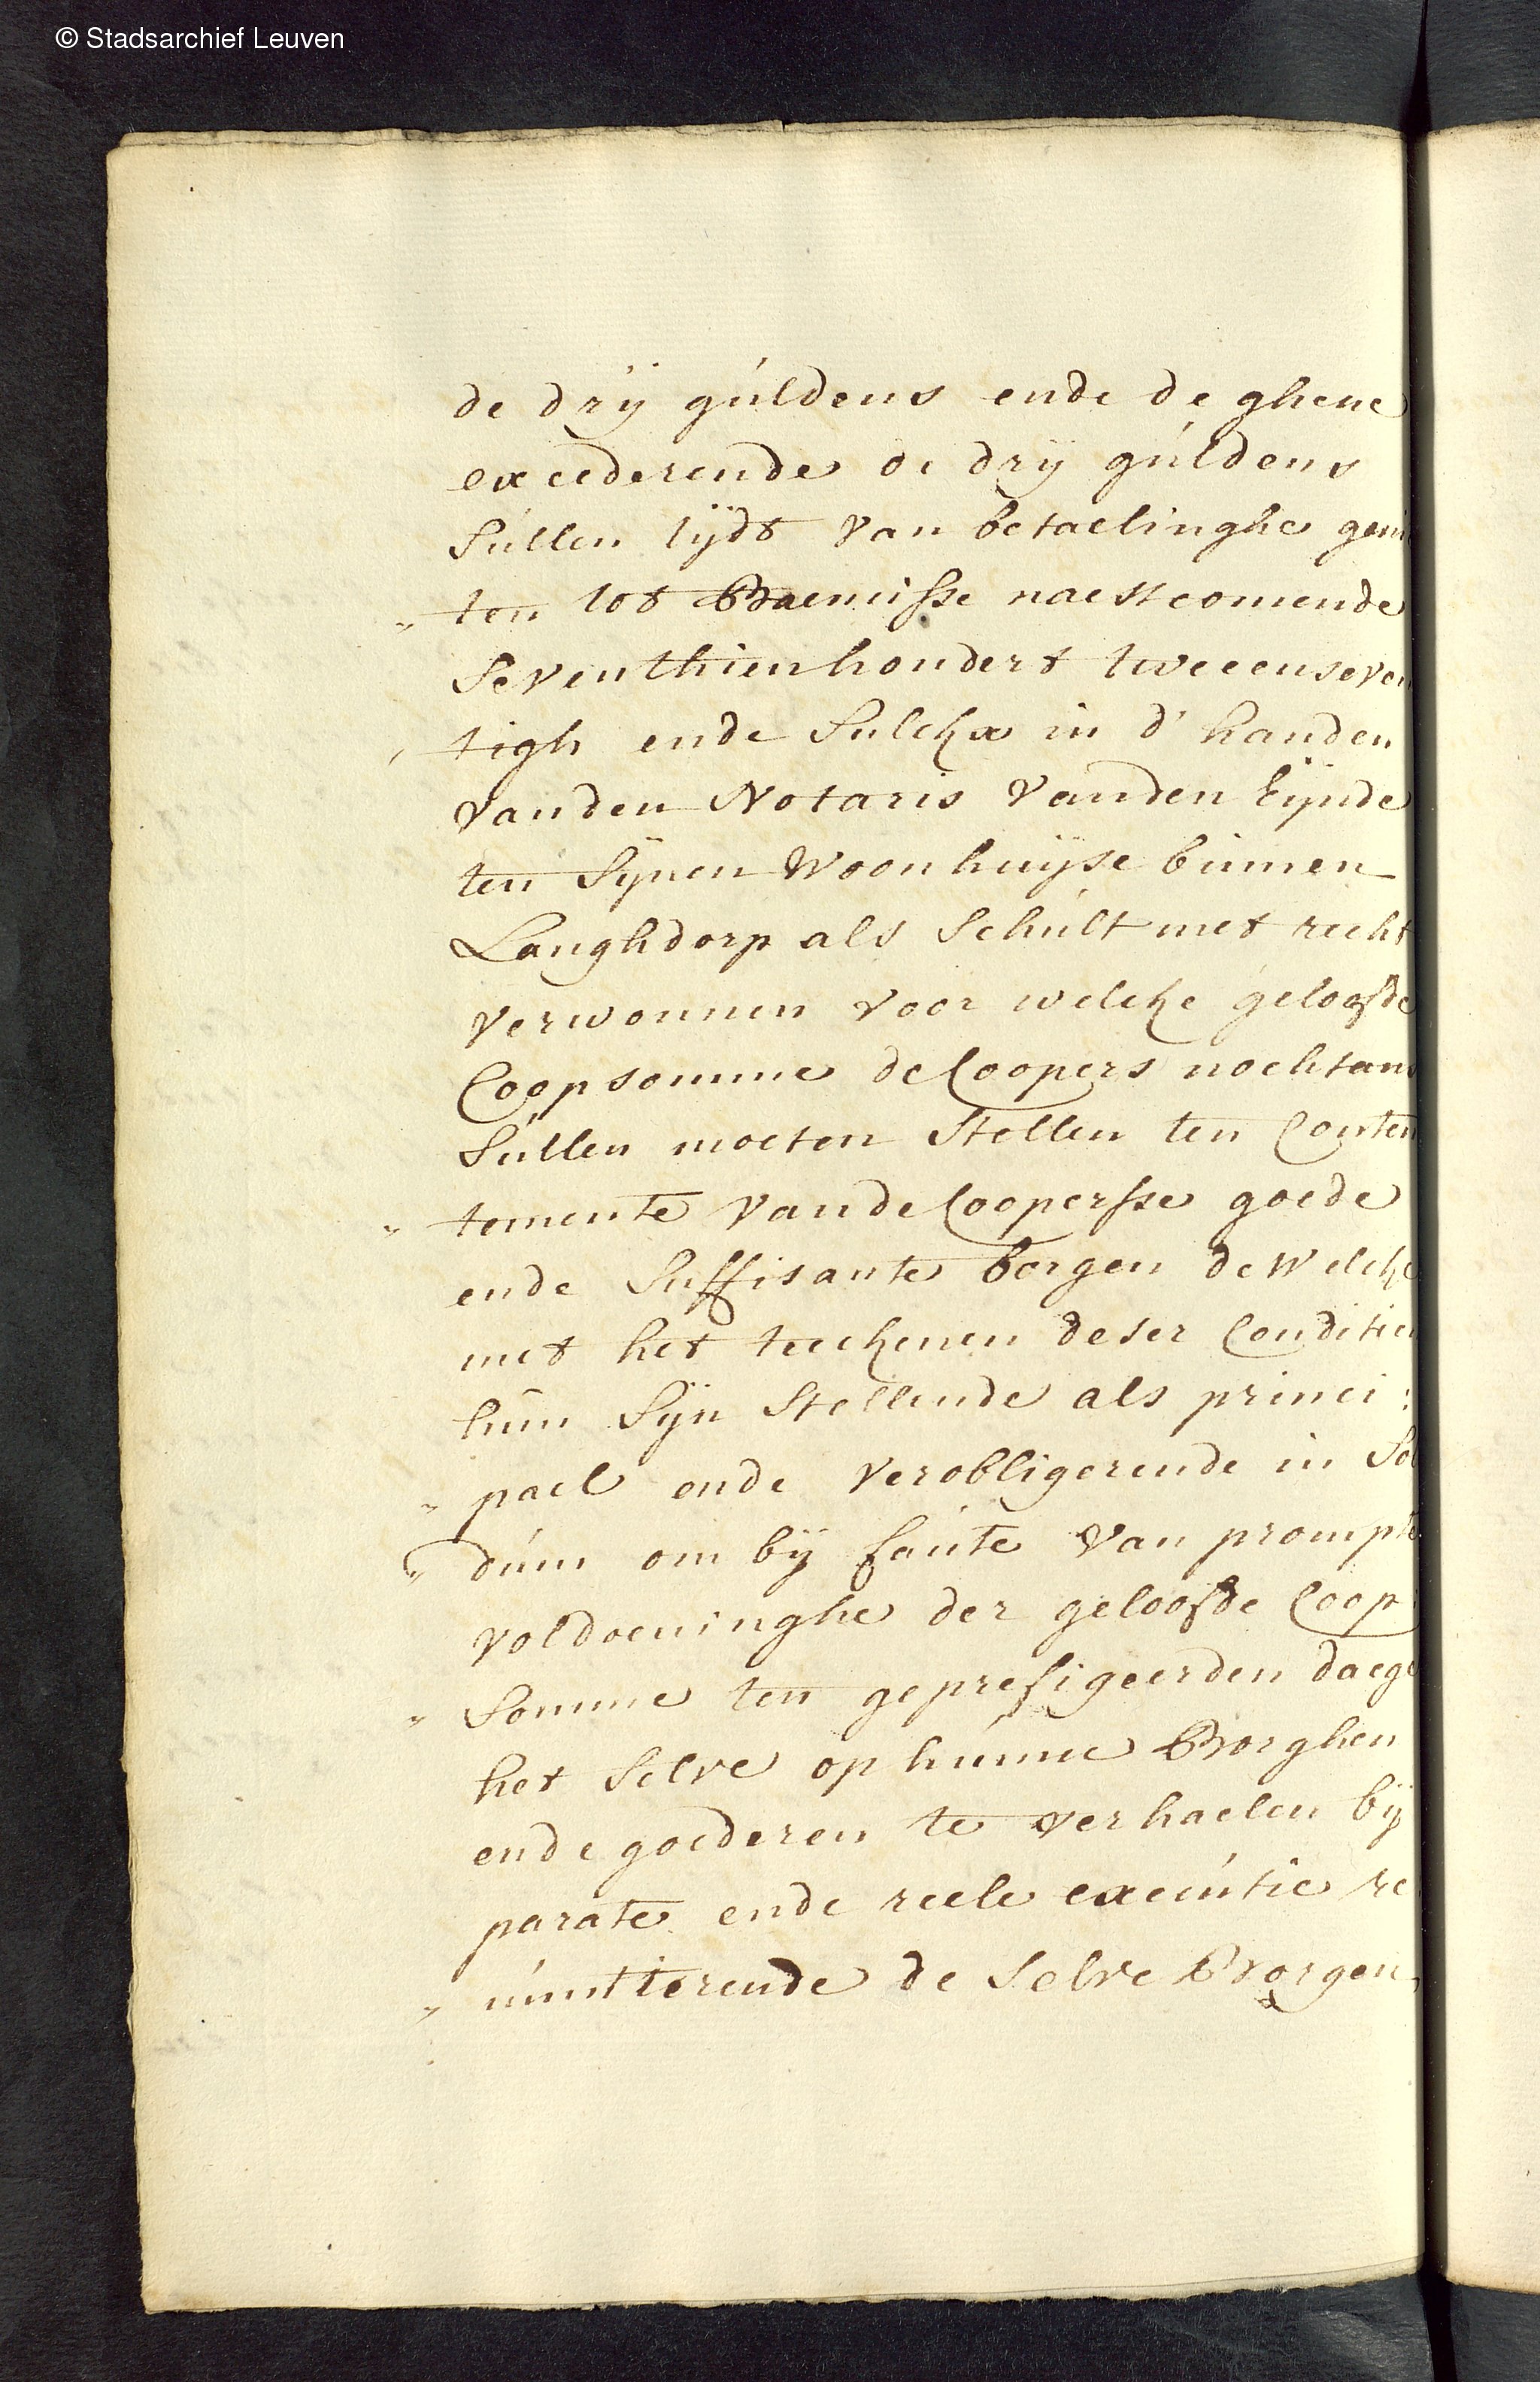 © Stadsarchief Leuven
de drij guldens ende de ghene
excederende de drij guldens
Sullen tijdt van betaelinghe geni
" ten tot Baemisse naestcomende
Seventhienhondert tweeenseven
, tigh ende Sulckx in d' handen
vanden Notaris vanden Eijnde
ten Sijnen Woonhuijse binnen
Langhdorp als Schult met recht
verwonnen voor welcke geloofde
Coopsomme de Coopers nochtans
Sullen moeten Stellen ten Conten
" temente vande Coopersse goede
ende Suffisante borgen de Welcke
met het teeckenen deser Conditien
hun Sijn Stellende als princi:
" pael ende verobligerende in Sol
" dum om bij faute van prompte
voldoeninghe der geloofde Coop
" Somme ten geprefigeerden daege
het Selve op hunne Borghen
ende goederen te verhaelen bij
parate ende reele executie re
" nuntierende de Selve Borgen,